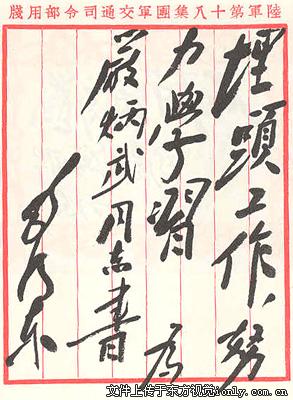 陸軍第十八集團軍交通司令部用牋
埋頭工作、努
力學習 為
嚴炳武同志書
毛泽东
文件上传于东方视觉ionly.com.cn